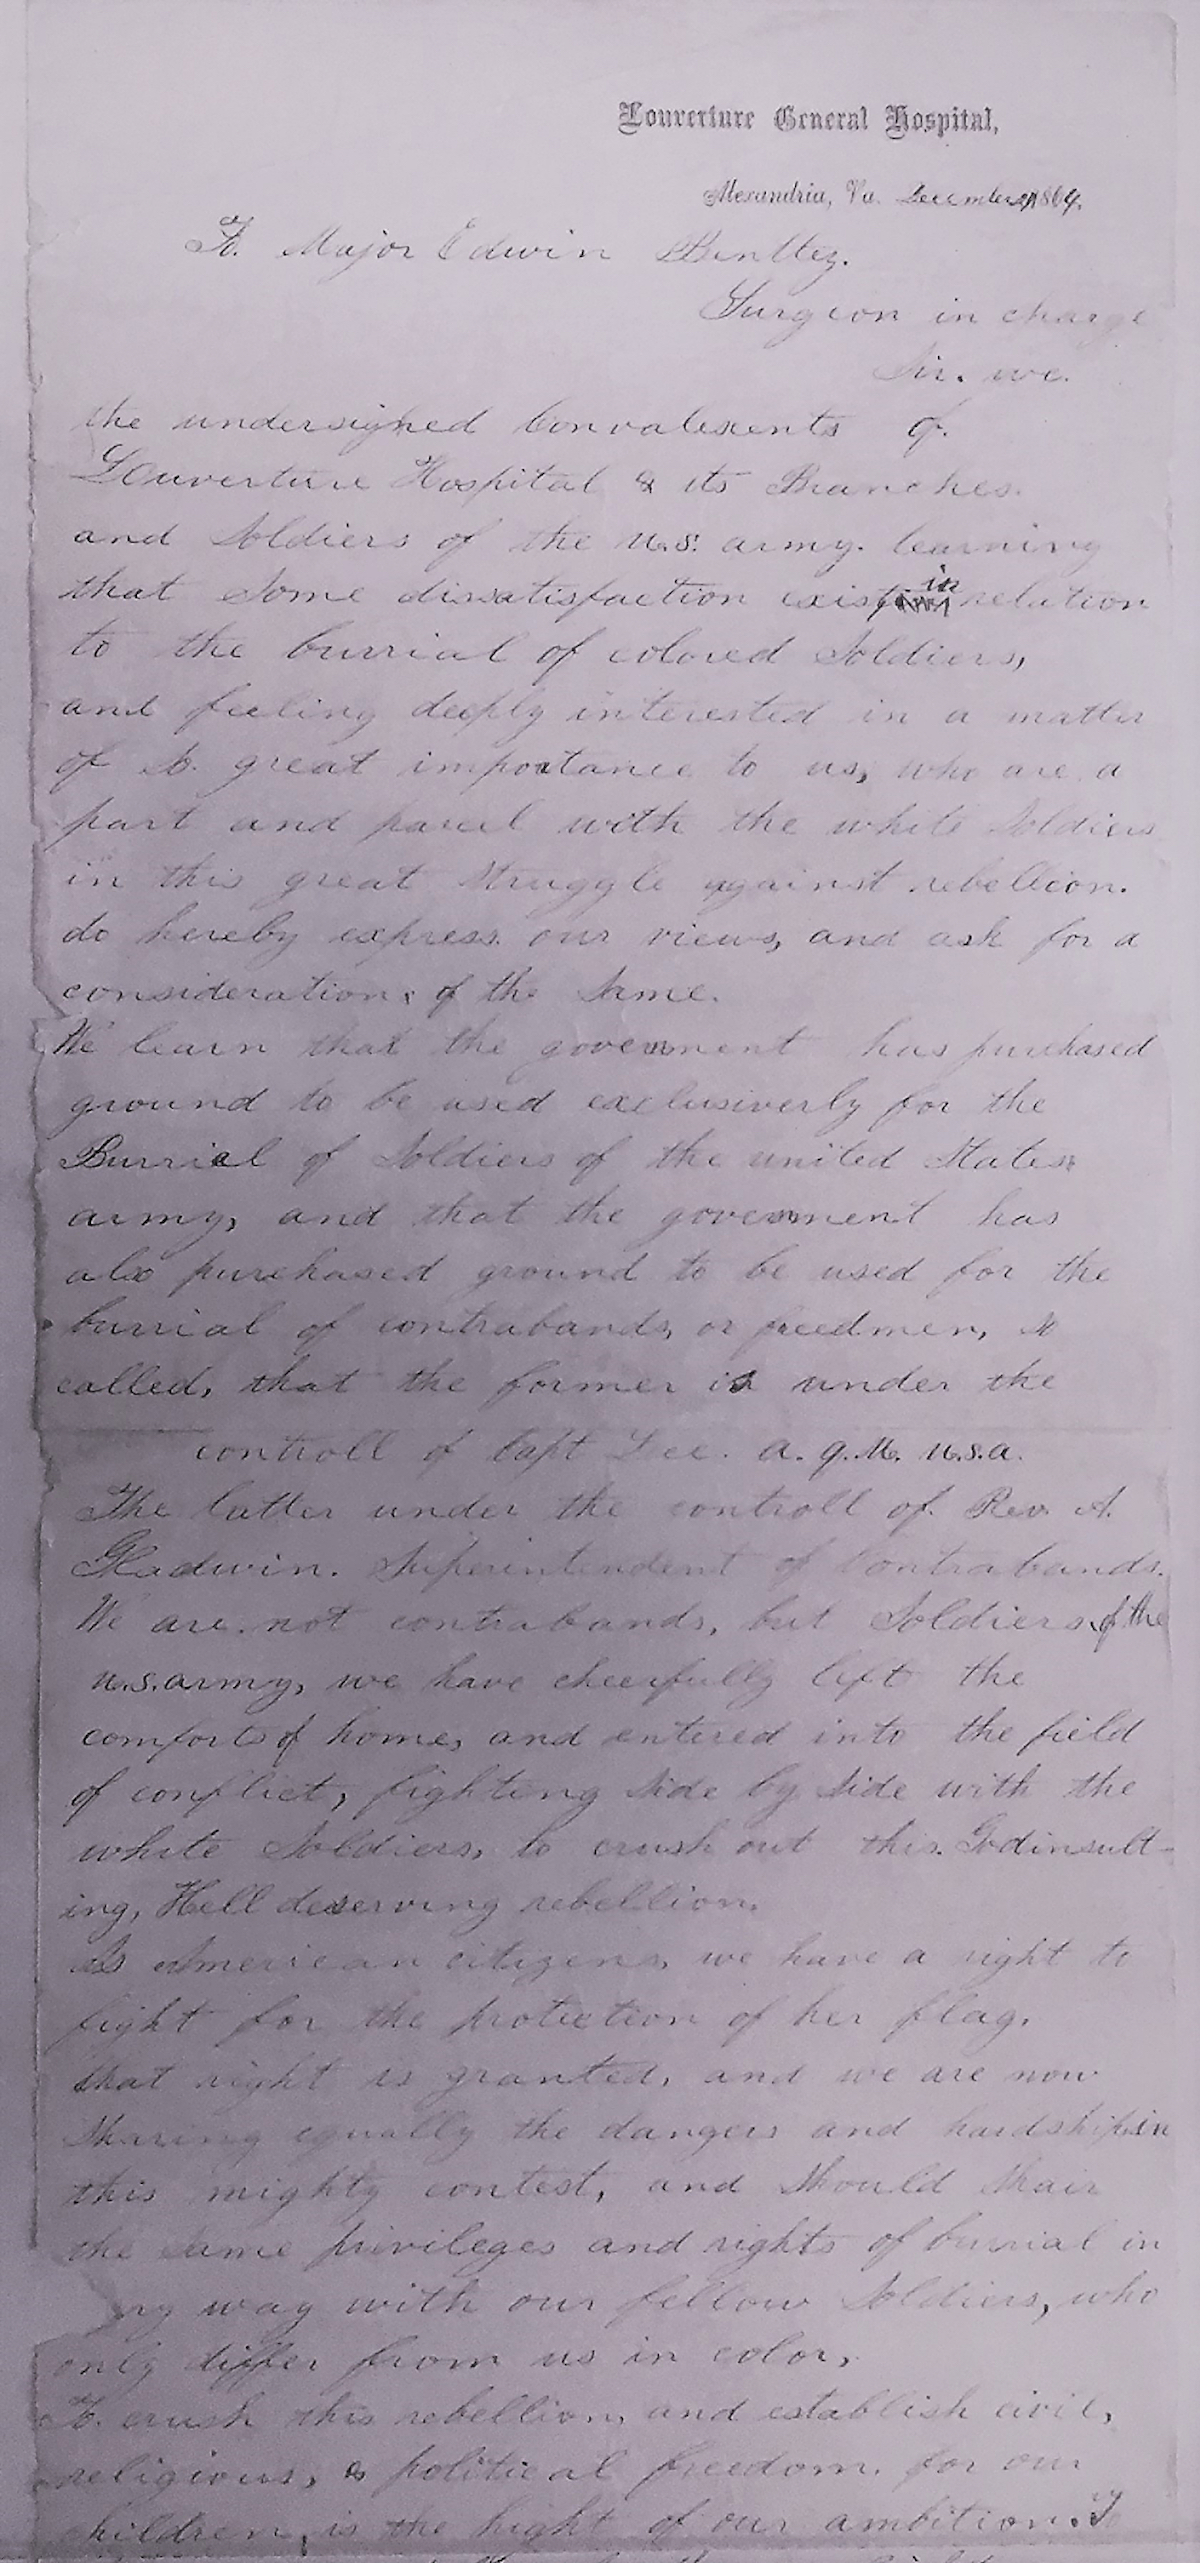 Louverture General Hospital,
Alexandria, Va. December 27 1864.
To. Major Edwin Bentley.
Surgeon in charge
Sir. we.
the undersigned Convalescents of.
Louverture Hospital & its Branches.
and Soldiers of the U.S. army. learning
that Some dissatisfaction exist in relation
to the burrial of colored Soldiers,
and feeling deeply interested in a matter
of so. great importance to us, who are a
part and parcel with the white Soldiers
in this great Struggle against rebellion.
do hereby express our views, and ask for a
consideration of the Same.
We learn that the government has purchased
ground to be used exclusiverly for the
Burrial of Soldiers of the united States
army, and that the government has
also purchased ground to be used for the
burrial of contrabands, or freedmen, so
called, that the former is under the
controll of Capt Lee. a. q. M. U.S.a.
The latter under the controll of. Rev. A.
Gladwin. Superintendent of Contrabands.
We are. not contrabands, but Soldiers of the
u.s.army, we have cheerfully left the
comforts of home, and entered into the field
of conflict, fighting side by side with the
white Soldiers, to crush out this. Godinsult-
ing, Hell deserving rebellion.
As American citizens, we have a right to
fight for the protection of her flag,
that right is granted, and we are now
Sharing equally the dangers and hardships in
this mighty contest, and Should Shair
the same privileges and rights of burrial in
ry way with our fellow Soldiers, who
only differ from us in color,
To. crush this rebellion, and establish civil,
religious, & political freedom. for our
children, is the hight of our ambition. To